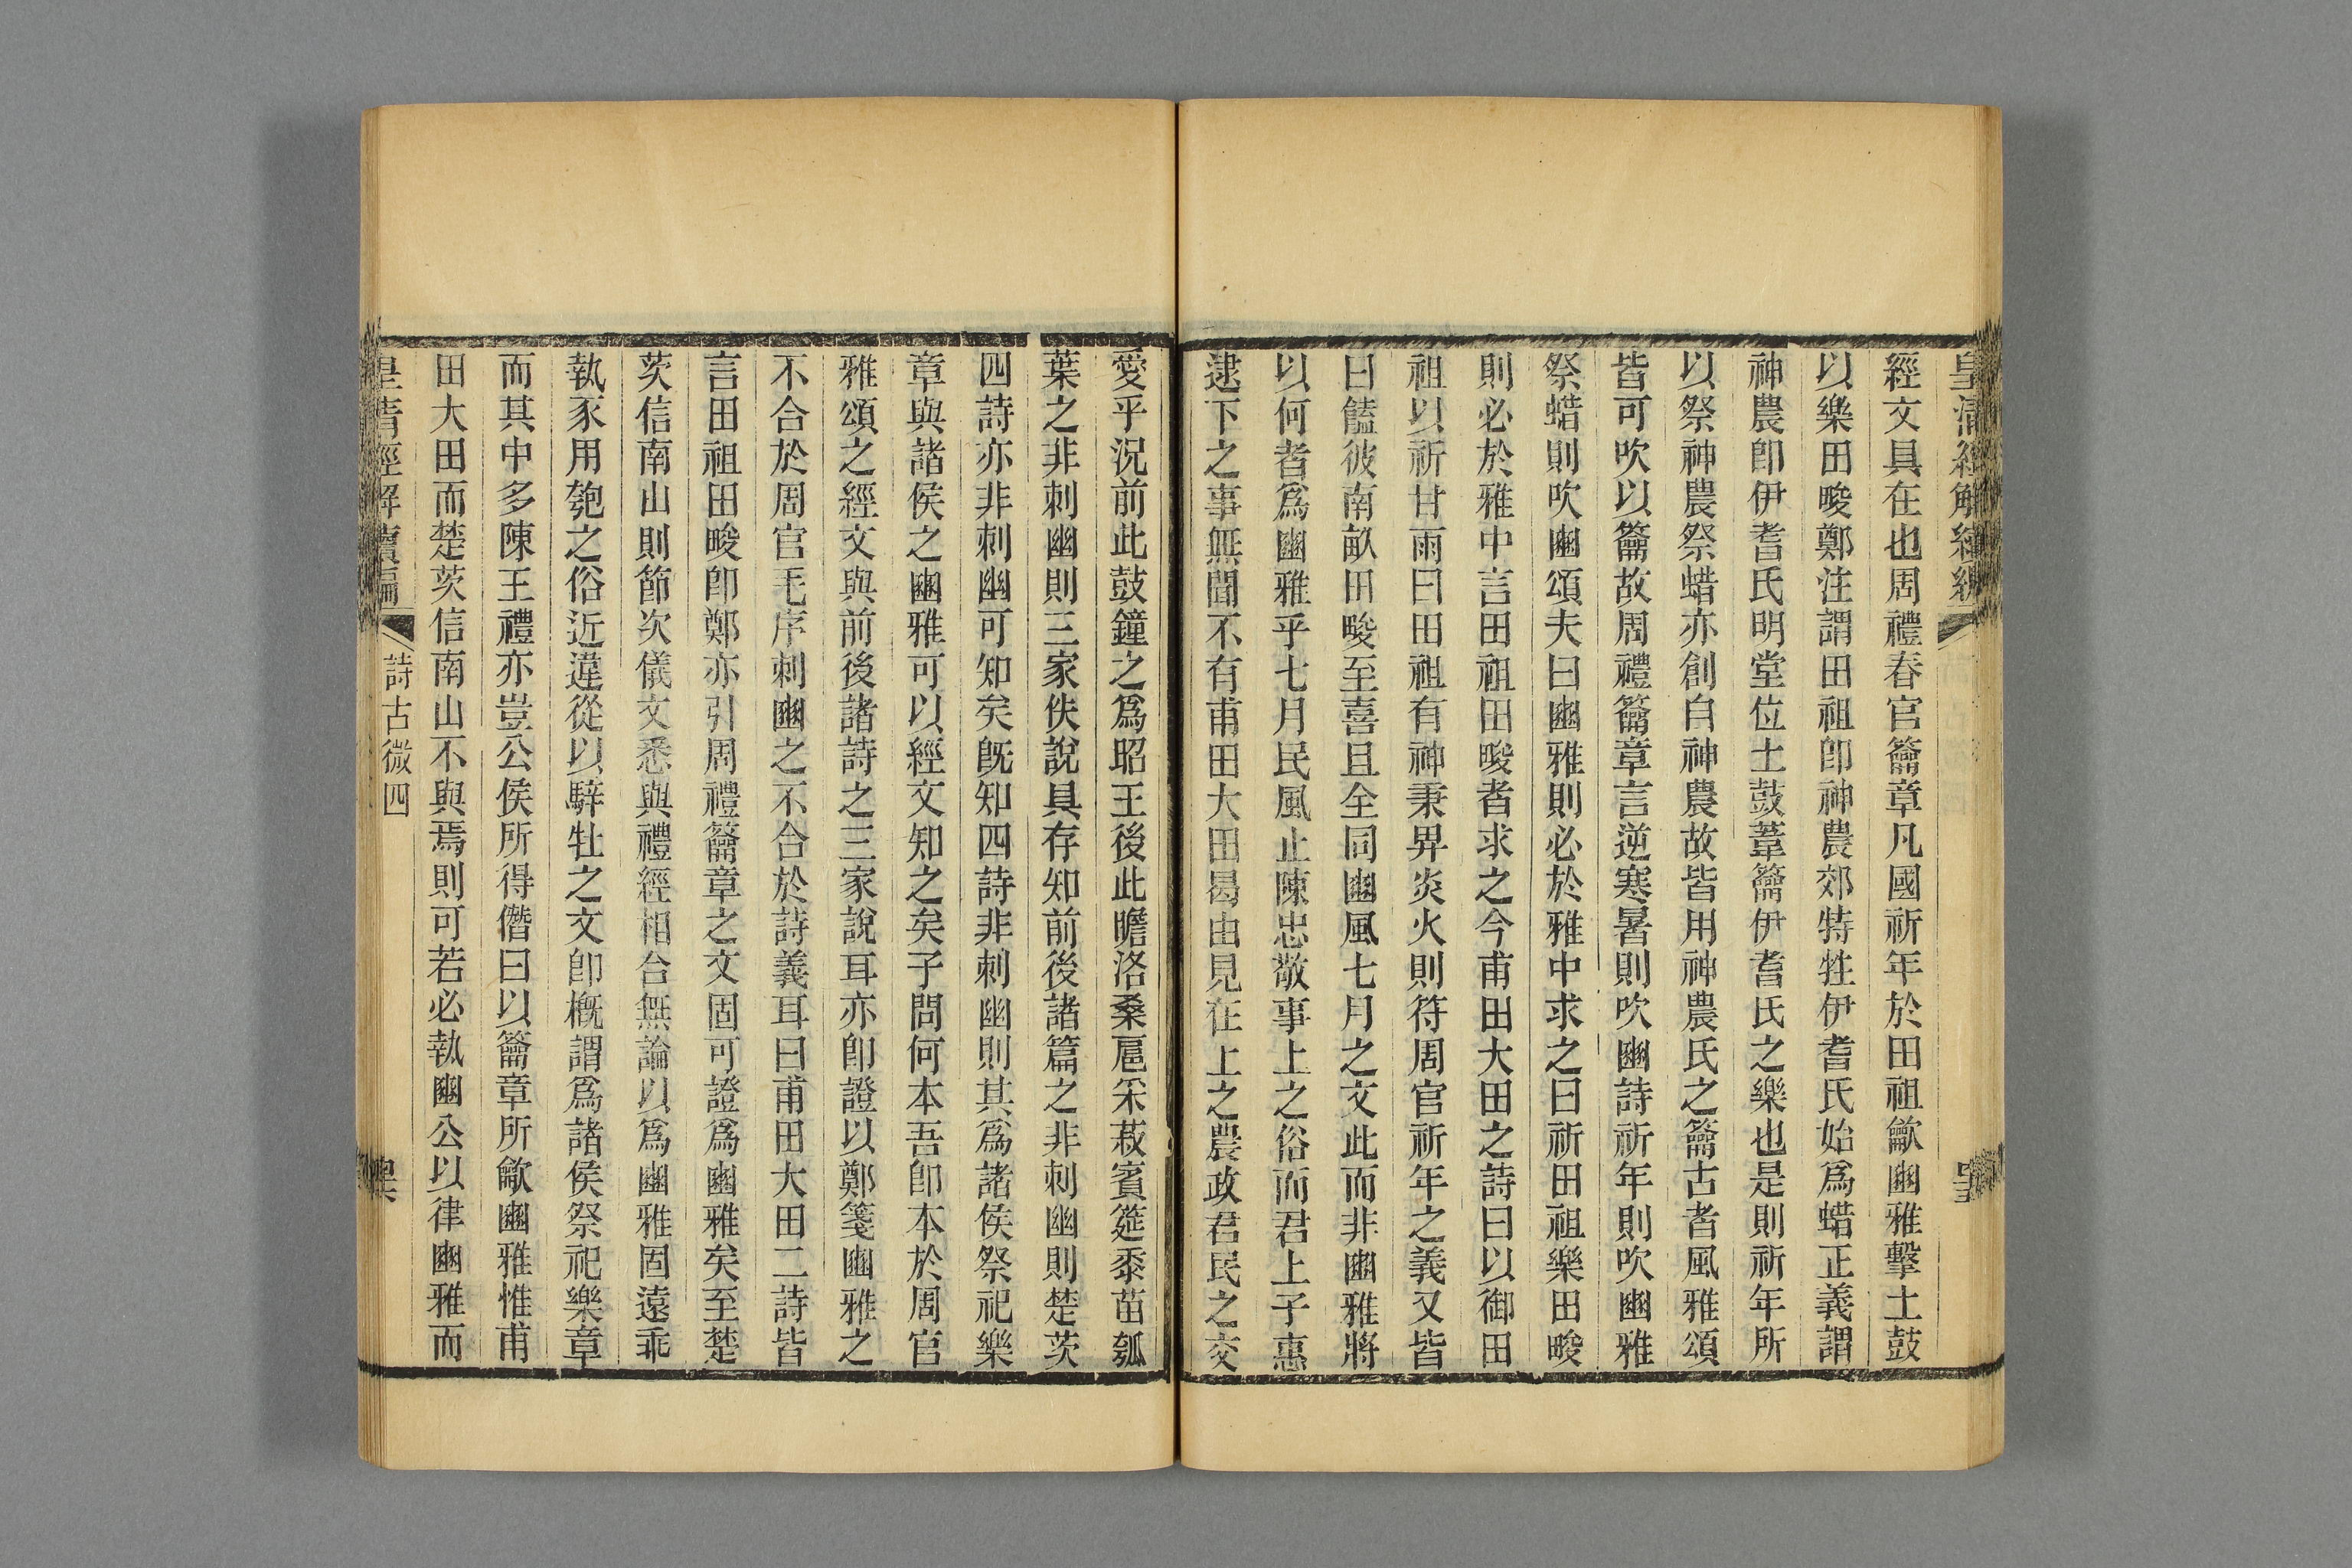 皇清經解續編
經文具在也周禮春官籥章凡國祈年於田祖龡豳雅擊土鼓
以樂田畯鄭注謂田祖卽神農郊特牲伊耆氏始爲蜡正義謂
神農卽伊耆氏明堂位土鼓葦籥伊耆氏之樂也是則祈年所
以祭神農祭蜡亦創自神農故皆用神農氏之籥古者風雅頌
皆可吹以籥故周禮籥章言逆寒暑則吹豳詩祈年則吹豳雅
祭蜡則吹豳頌夫曰豳雅則必於雅中求之曰祈田祖樂田畯
則必於雅中言田祖田畯者求之今甫田大田之詩曰以御田
祖以祈甘雨曰田祖有神秉畀炎火則符周官祈年之義又皆
曰饁彼南畝田畯至喜且全同豳風七月之文此而非豳雅將
以何者爲豳雅乎七月民風止陳忠敬事上之俗而君上子惠
逮下之事無聞不有甫田大田曷由見在上之農政君民之交
愛乎況前此鼓鐘之爲昭王後此瞻洛桑扈采菽賓筵黍苗瓠
葉之非刺幽則三家佚說具存知前後諸篇之非刺幽則楚茨
四詩亦非刺幽可知矣旣知四詩非刺幽則其爲諸侯祭祀樂
章與諸侯之豳雅可以經文知之矣子問何本吾卽本於周官
雅頌之經文與前後諸詩之三家說耳亦卽證以鄭箋豳雅之
不合於周官毛序刺幽之不合於詩義耳曰甫田大田二詩皆
言田祖田畯卽鄭亦引周禮籥章之文固可證爲豳雅矣至楚
茨信南山則節次儀文悉與禮經相合無論以爲豳雅固遠乖
執豕用匏之俗近違從以騂牡之文卽槪謂爲諸侯祭祀樂章
而其中多陳王禮亦豈公侯所得僭曰以籥章所龡豳雅惟甫
田大田而楚茨信南山不與焉則可若必執豳公以律豳雅而
皇清經解續編
詩古微四